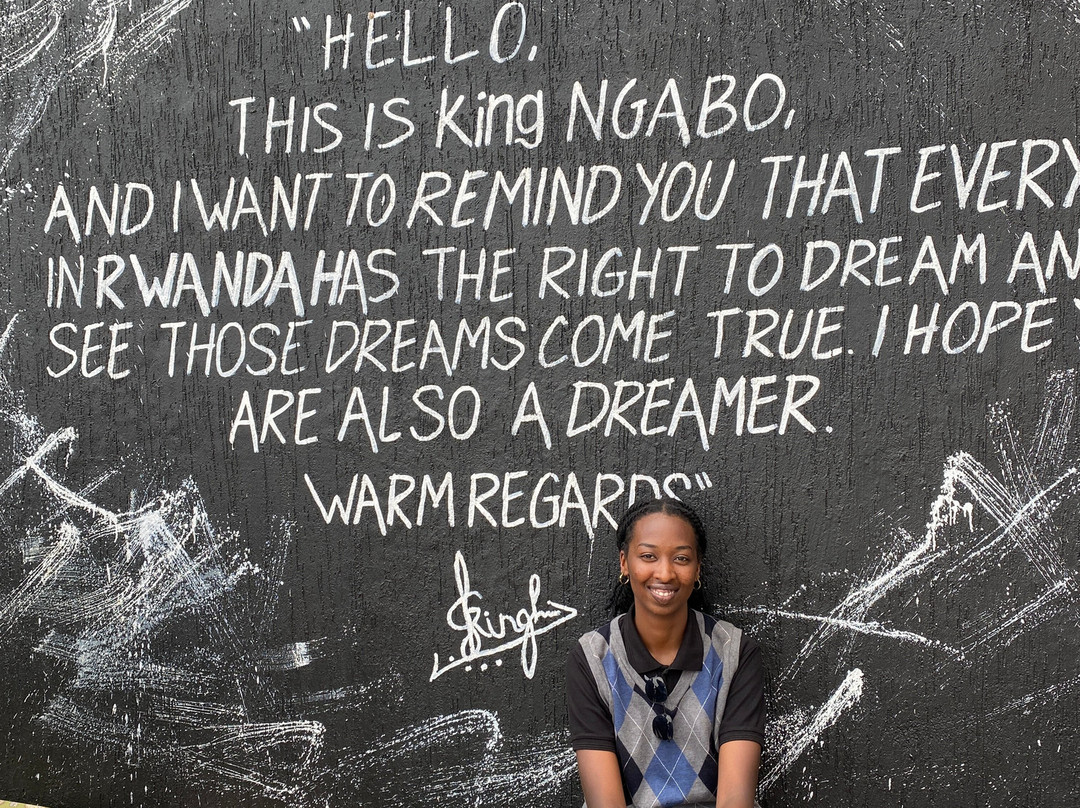 "HELLO,
THIS IS King NGABO,
AND I WANT TO REMIND YOU THAT EVERY
IN RWANDA HAS THE RIGHT TO DREAM AN
SEE THOSE DREAMS COME TRUE. I HOPE Y
ARE ALSO A DREAMER.
WARM REGARDS"
King